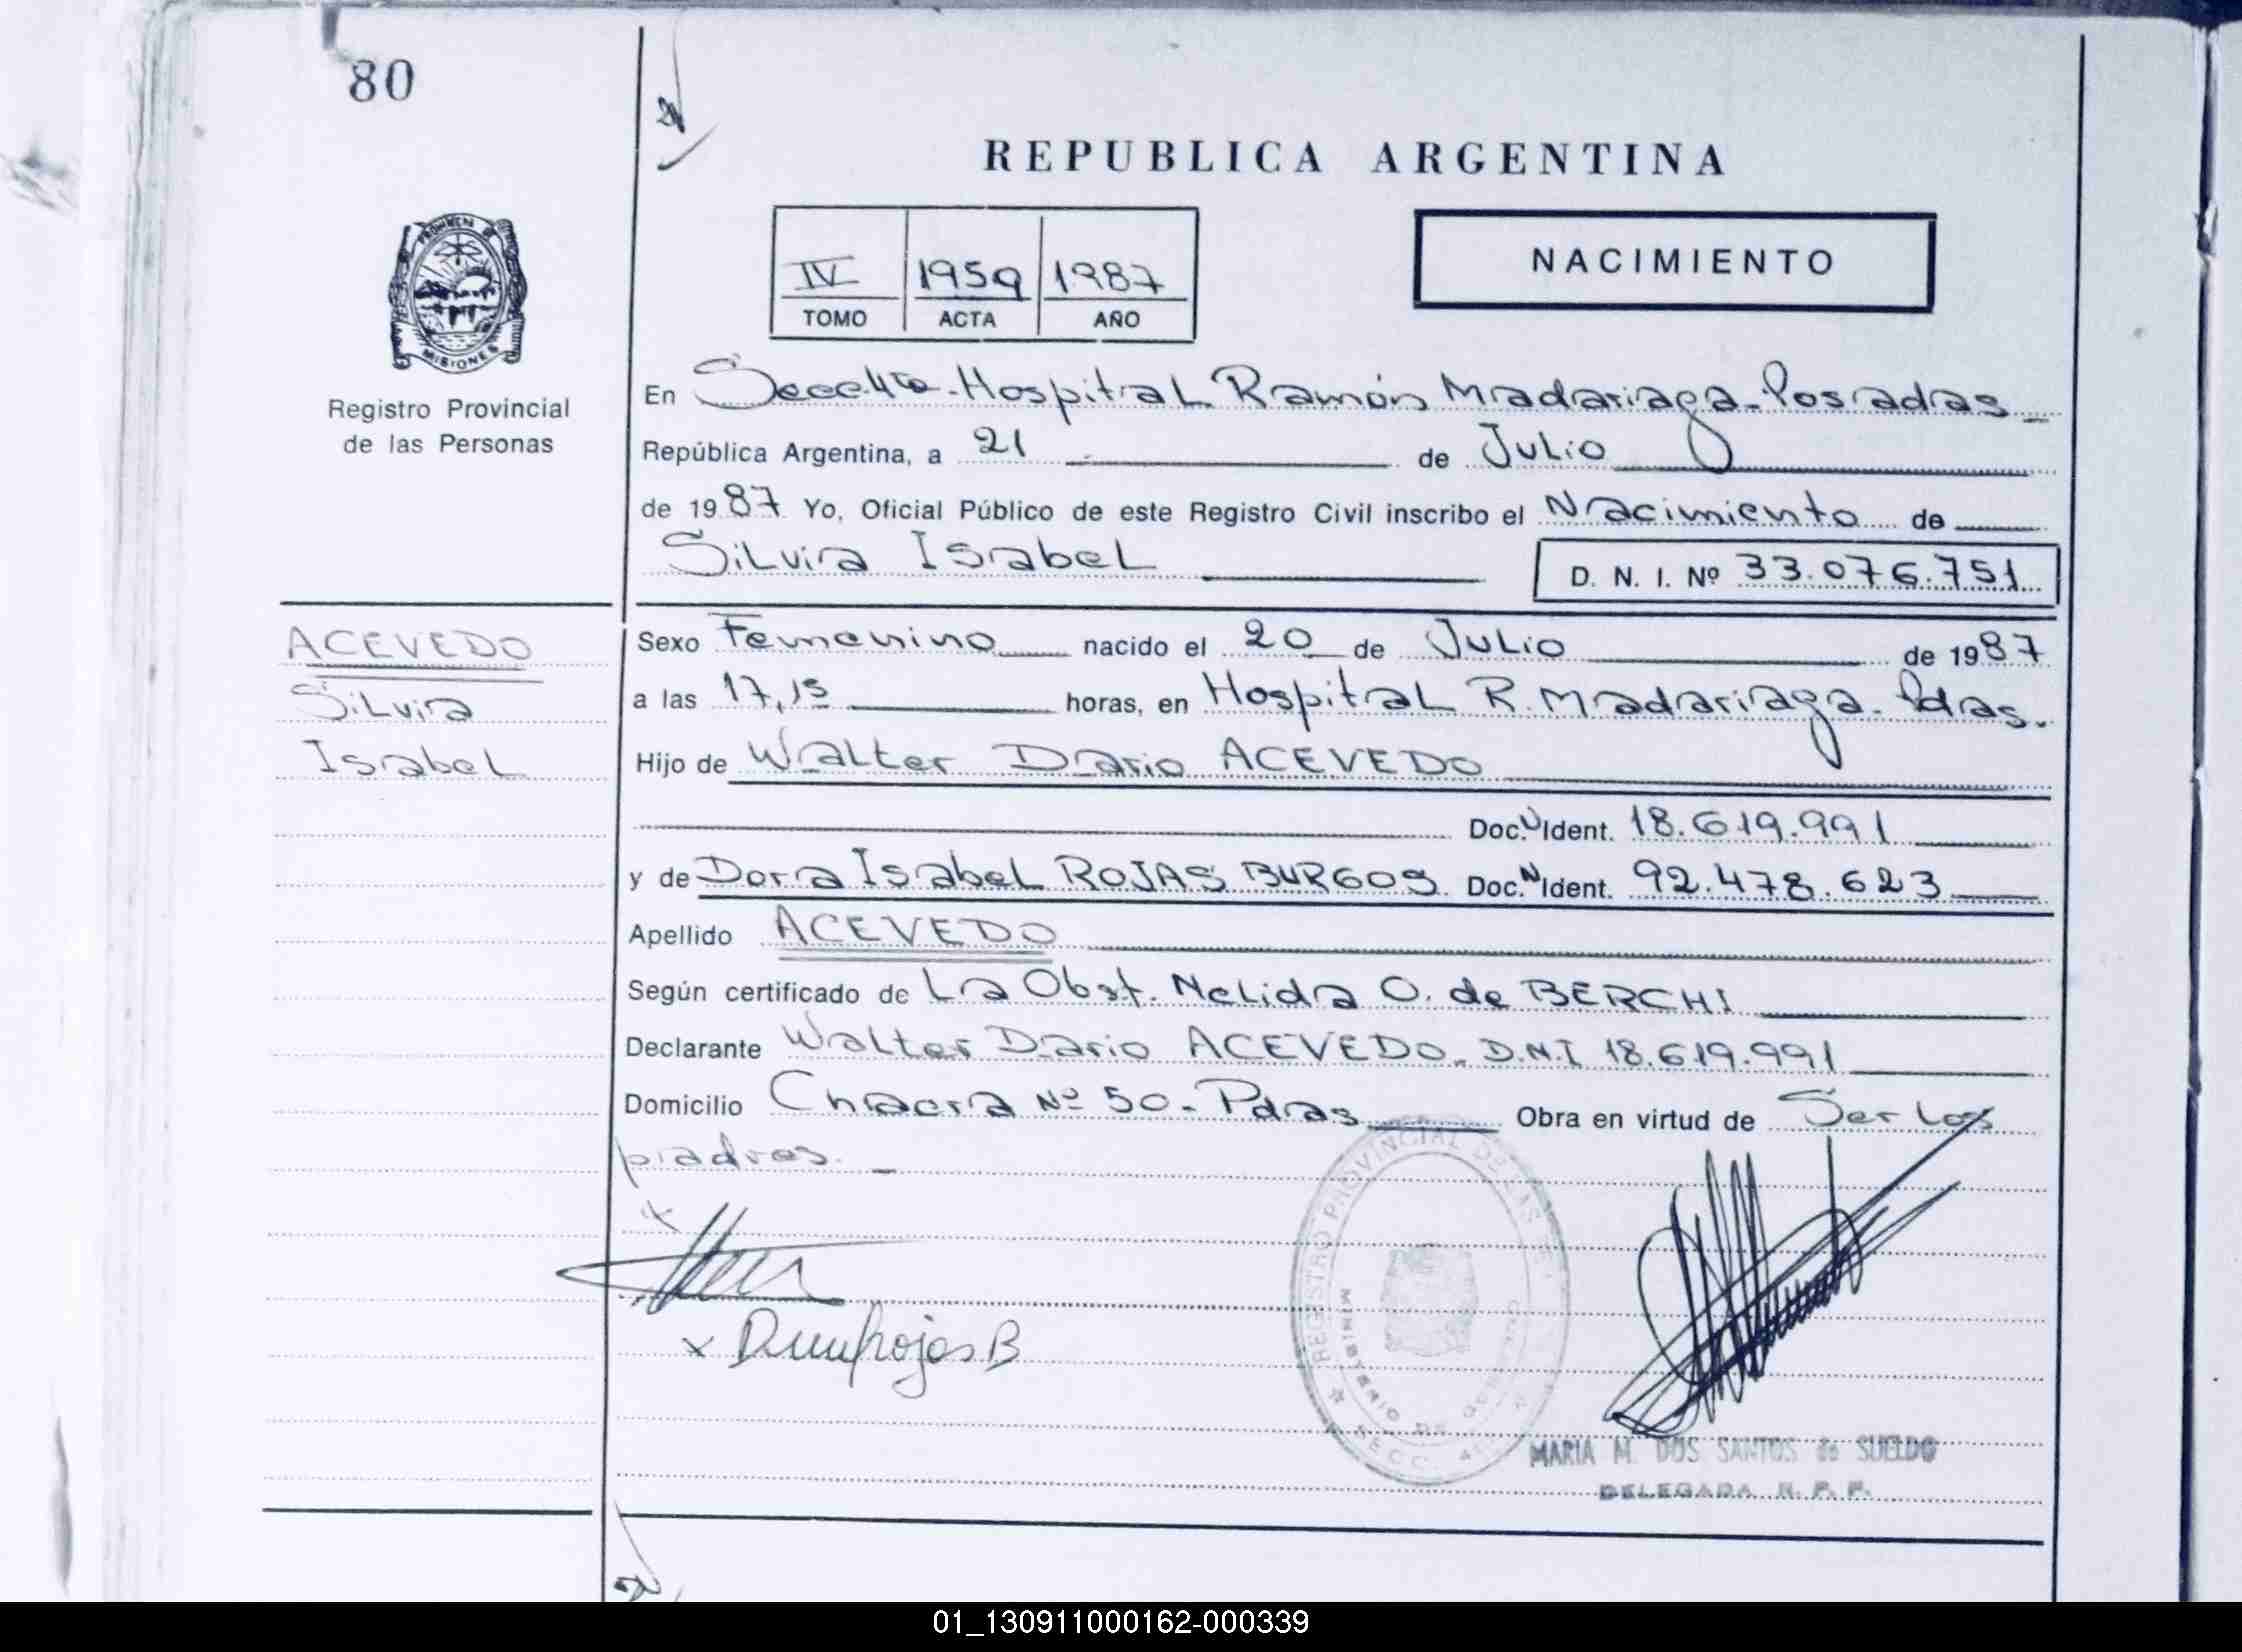 80
REPUBLICA ARGENTINA
PROVINCIA DE
MISIONES
Registro Provincial
de las Personas
IV 1959 1987
TOMO ACTA AÑO
NACIMIENTO
En Secc. 4ta. Hospital Ramón Madariaga - Posadas
República Argentina, a 21 de Julio
de 1987 Yo, Oficial Público de este Registro Civil inscribo el Nacimiento de
Silvia Isabel D. N. I. Nº 33.076.751
ACEVEDO
Silvia
Isabel
Sexo Femenino nacido el 20 de Julio de 1987
a las 17,15 horas, en Hospital R. Madariaga - Pdas.
Hijo de Walter Dario ACEVEDO
Doc. Ident. 18.619.991
y de Dora Isabel ROJAS BURGOS Doc. N Ident. 92.478.623
Apellido ACEVEDO
Según certificado de La Obst. Nelida O. de BERCHI
Declarante Walter Dario ACEVEDO - D.N.I 18.619.991
Domicilio Chacra Nº 50 - Pdas Obra en virtud de Ser los
padres. -
x
x Rojas B
REGISTRO PROVINCIAL DE LAS
MINISTERIO DE
SECC. 4
MARIA M. DOS SANTOS de SUELDO
DELEGADA R. P. P.
01_130911000162-000339